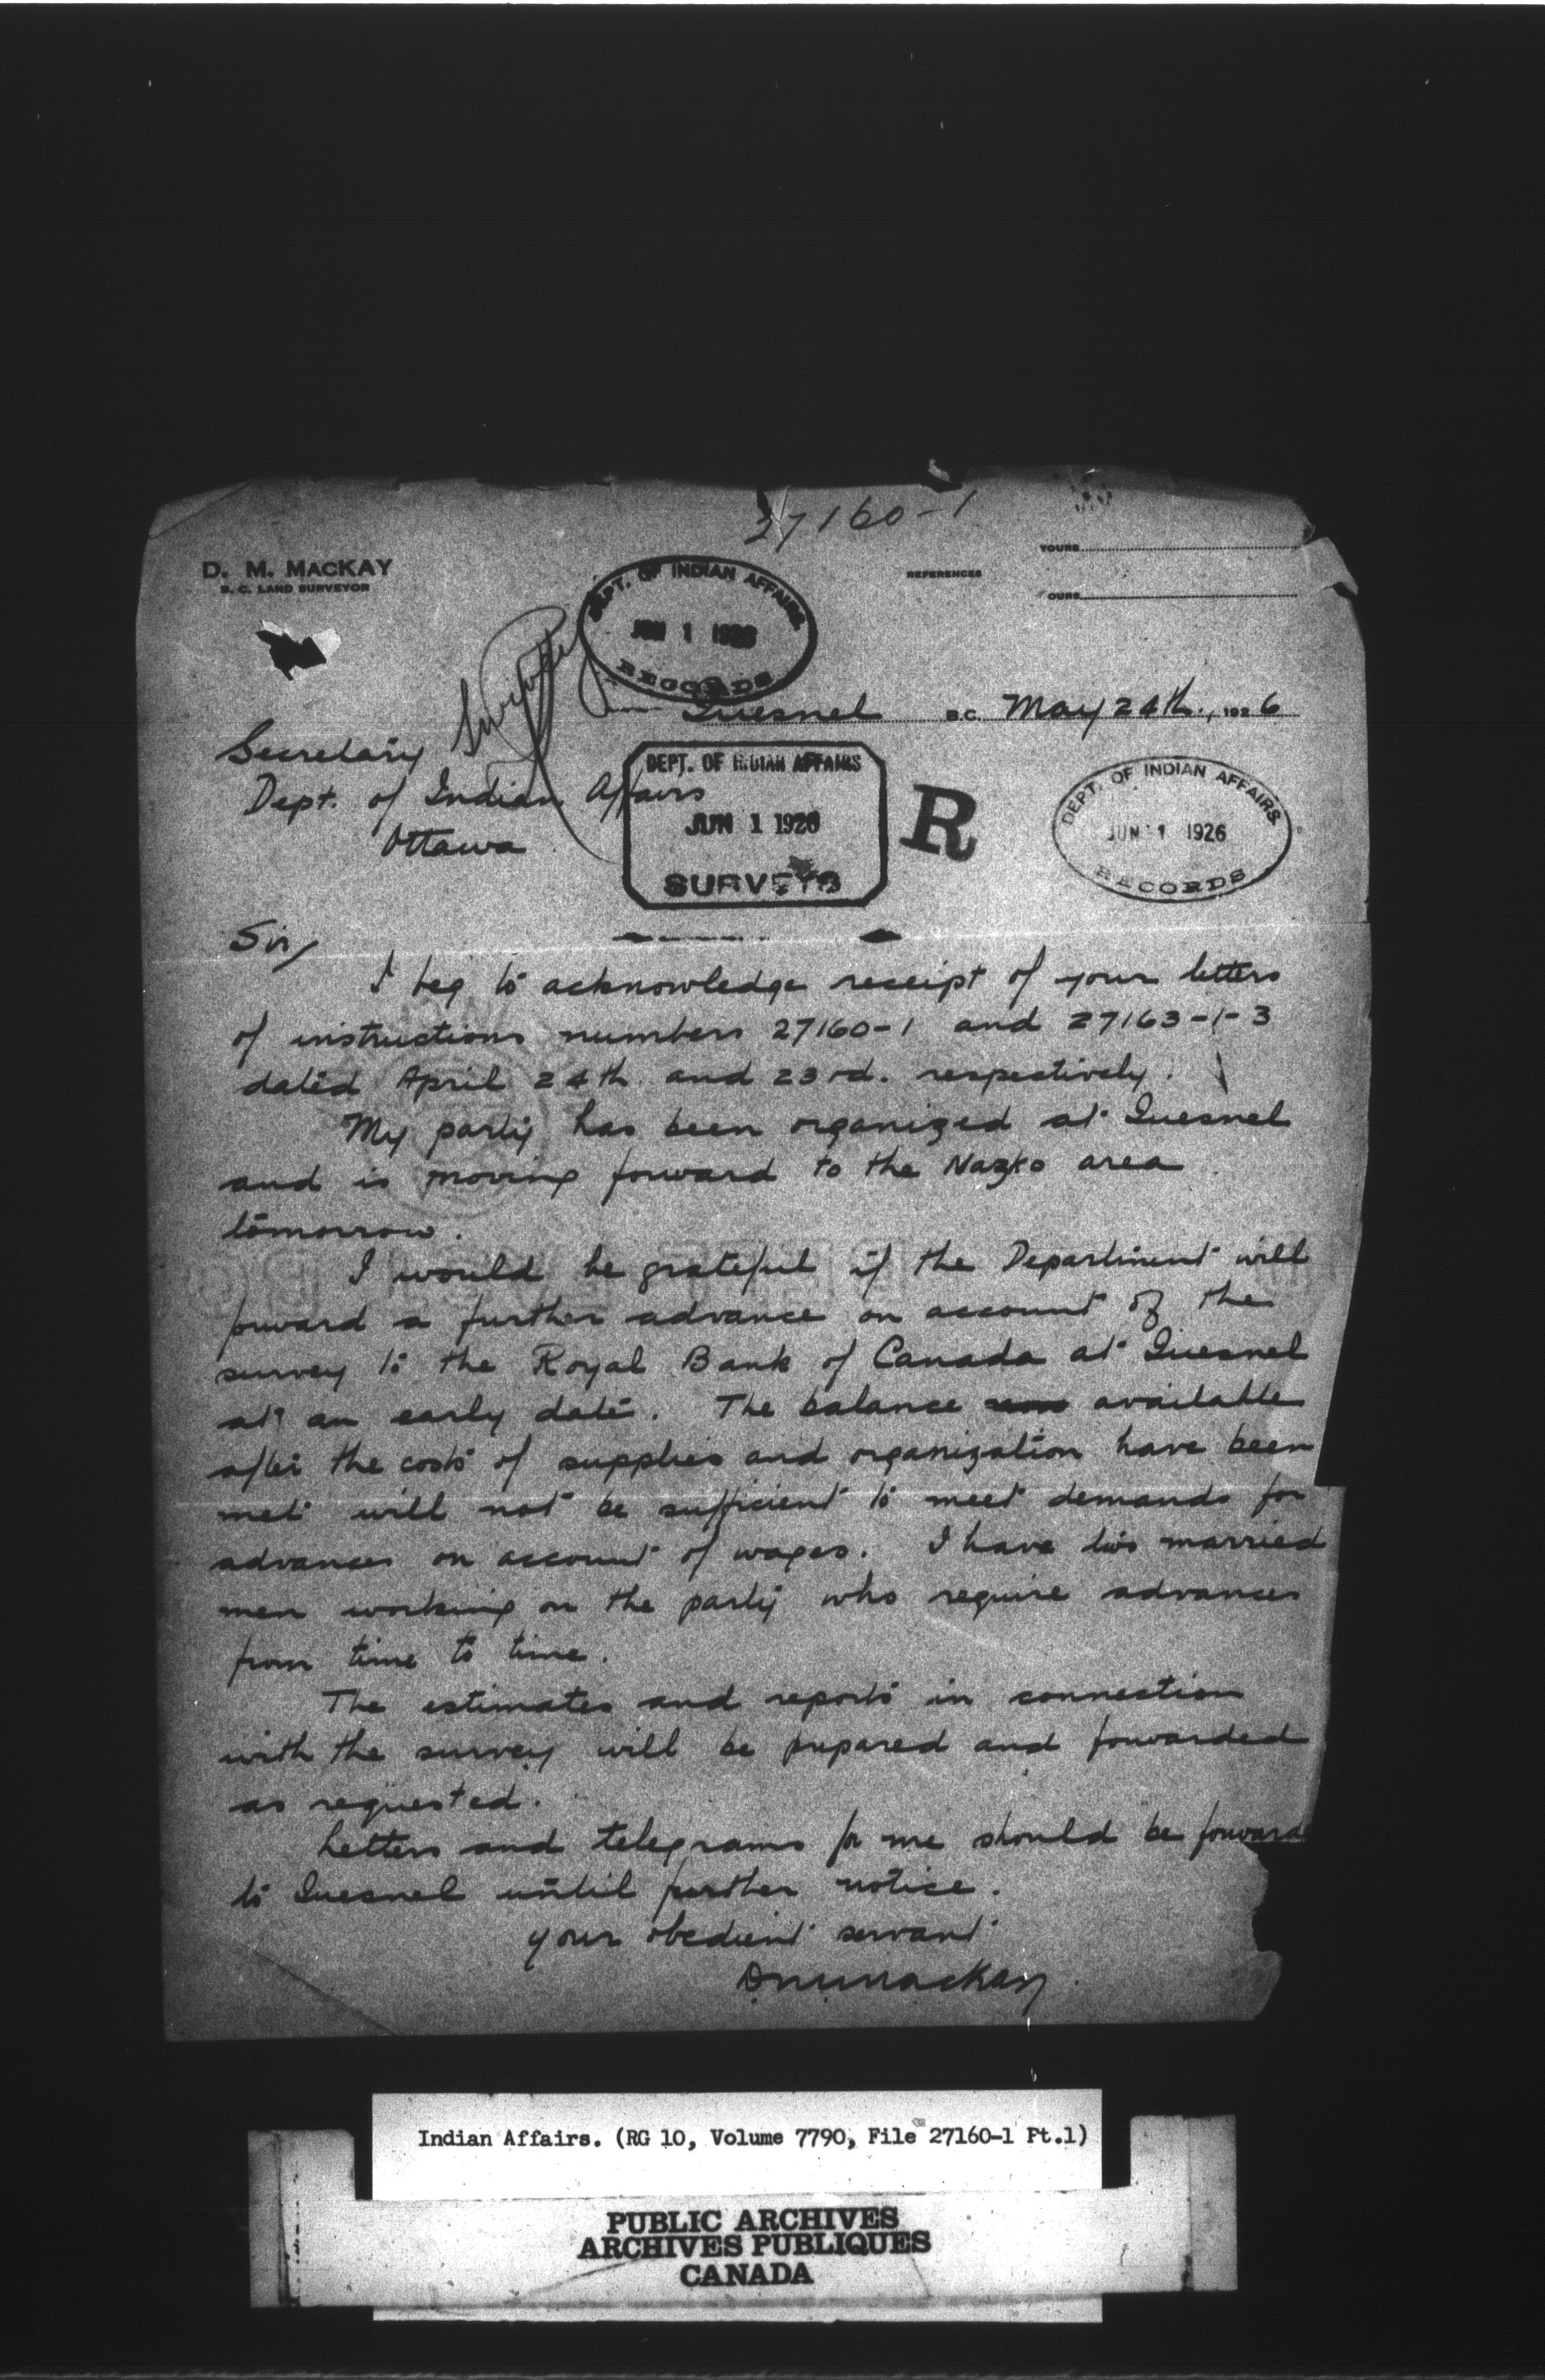 27160-1
D. M. MACKAY
B. C. LAND SURVEYOR
REFERENCES
YOURS
OURS
DEPT. OF INDIAN AFFAIRS.
JUN 1 1926
RECORDS
Surveys
Quesnel B.C. May 24th., 1926
Secretary
Dept. of Indian Affairs
Ottawa
DEPT. OF INDIAN AFFAIRS
JUN 1 1926
SURVEYS
R
DEPT. OF INDIAN AFFAIRS.
JUN 1 1926
RECORDS
Sir,
I beg to acknowledge receipt of your letters
of instructions numbers 27160-1 and 27163-1-3
dated April 24th. and 23rd. respectively.
My party has been organized at Quesnel
and is moving forward to the Nazko area
tomorrow.
I would be grateful if the Department will
forward a further advance on account of the
survey to the Royal Bank of Canada at Quesnel
at an early date. The balance available
after the costs of supplies and organization have been
met will not be sufficient to meet demands for
advances on account of wages. I have two married
men working on the party who require advances
from time to time.
The estimates and reports in connection
with the survey will be prepared and forwarded
as requested.
Letters and telegrams for me should be forward
to Quesnel until further notice.
your obedient servant
D.M. MacKay
Indian Affairs. (RG 10, Volume 7790, File 27160-1 Pt.1)
PUBLIC ARCHIVES
ARCHIVES PUBLIQUES
CANADA